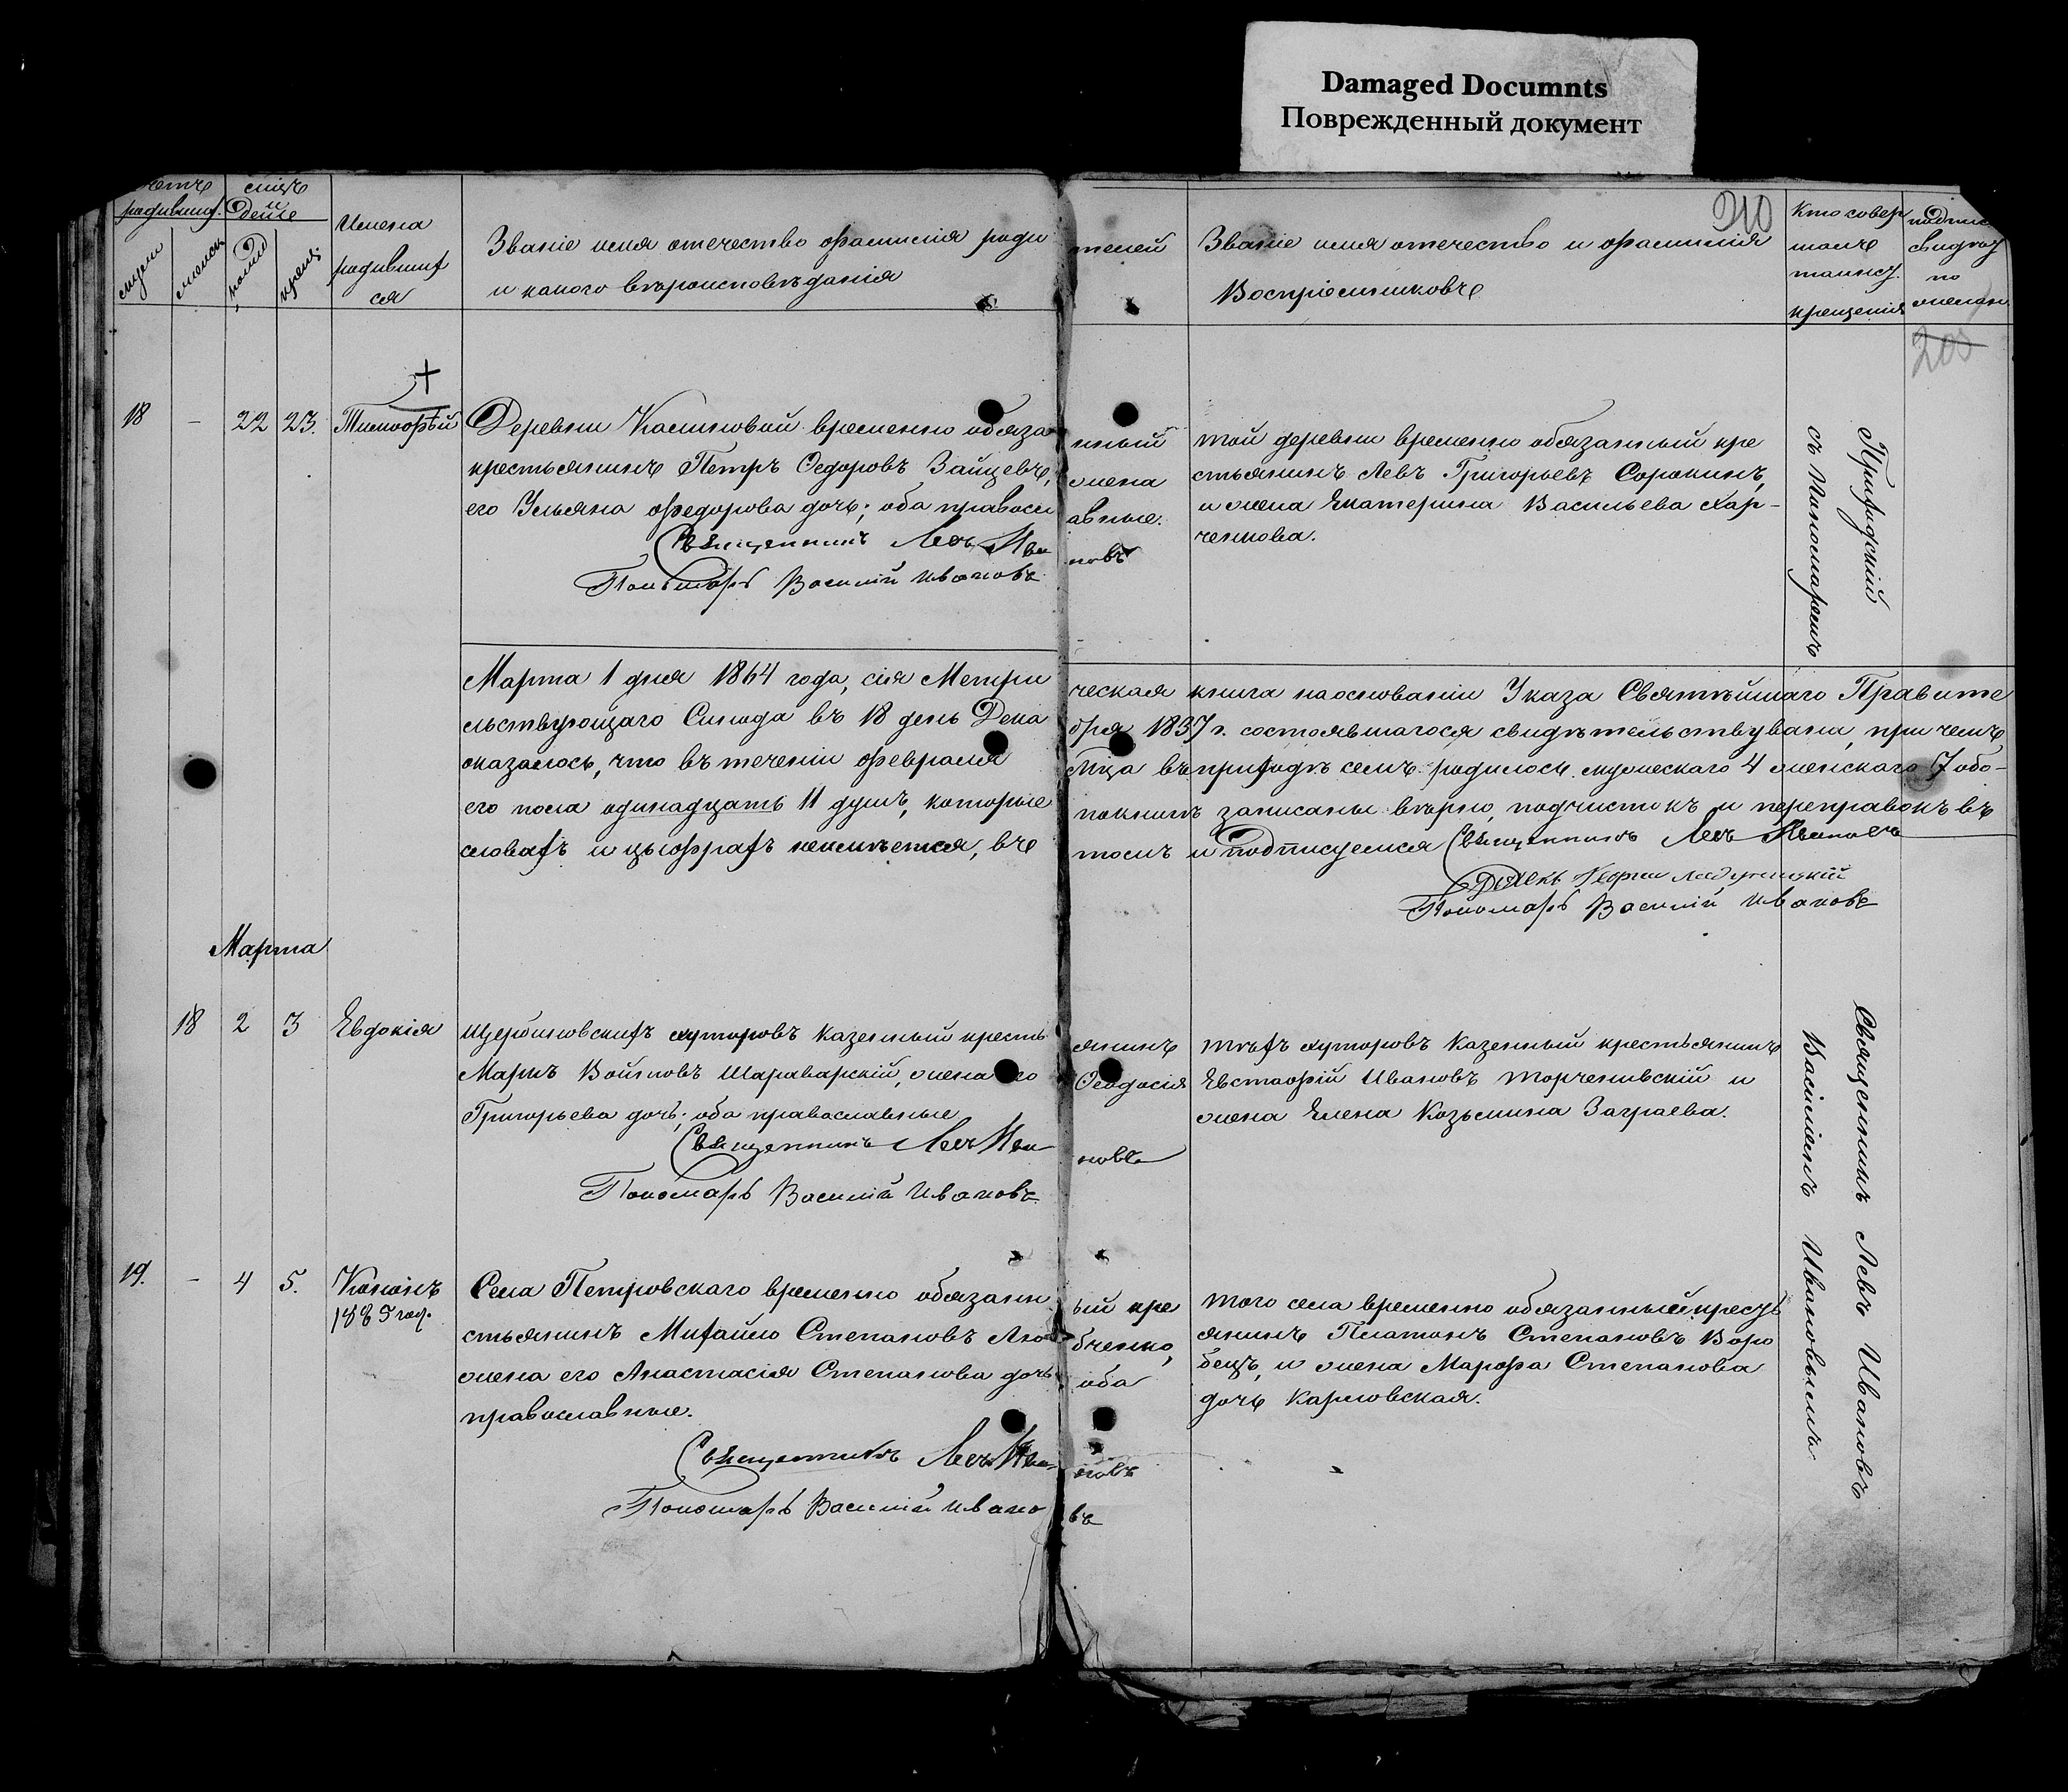 Damaged Documnts
Поврежденный документ
210
родивших. дение
Имена
родивших
ся
Званіе имя отечество фамилія роди телей
и какого вѣроисповѣданія
Званіе имя отечество и фамилія
Воспріемниковъ
Кто совер
шалъ
таинст.
крещенія
по
желан.
18 – 22 23. Тимофѣй
Деревни Калиновой временно обяза нный
крестьянинъ Петръ Ѳедоровъ Зайцевъ, жена
его Ульяна Федорова дочь; оба правосл авные.
Священникъ Левъ Ива новъ
Пономарь Василій Ивановъ
той деревни временно обязанный кре
стьянинъ Левъ Григорьевъ Сорокинъ,
и жена Екатерина Васильева Хар-
ченкова.
съ Пономаремъ
Марта 1 дня 1864 года, сія Метри ческая книга наоснованіи Указа Святѣйшаго Правите
льствующаго Синода въ 18 день Дека бря 1837 г. состоявшагося свидѣтельствувана, при чемъ
оказалось, что въ теченіи февраля мца въ приходѣ семъ родилось мужескаго 4 женскаго 7 обо-
его пола одинадцать 11 душъ, которые покнигѣ записаны вѣрно, подчистокъ и переправокъ въ
словахъ и цыфрахъ неимѣется, въ томъ и подписуемся Священникъ Левъ Ивановъ
Дьякъ Георгій
Пономарь Василій Ивановъ
Марта
18 2 3 Евдокія
Щербиновскихъ хуторовъ казенный кресть янинъ
Маркъ Войновъ Шараварскій, жена его Ѳеодосія
Григорьева дочь; оба православные
Священникъ Левъ Ива новъ
Пономарь Василій Ивановъ
тѣхъ хуторовъ казенный крестьянинъ
Евстафій Ивановъ Торченивскій и
жена Елена Козьмина Заграева.
Священникъ Левъ Ивановъ
Василіемъ Ивановымъ
19. – 4 5. Кононъ
Села Петровскаго временно обязанн ый кре
стьянинъ Михайло Степановъ Люб бченко,
жена его Анастасія Степанова дочь оба
православные.
Священникъ Левъ Ива новъ
Пономарь Василій Ивано въ
того села временно обязанный кресть
янинъ Платонъ Степановъ Воро
бецъ, и жена Марфа Степанова
дочь Карловская.